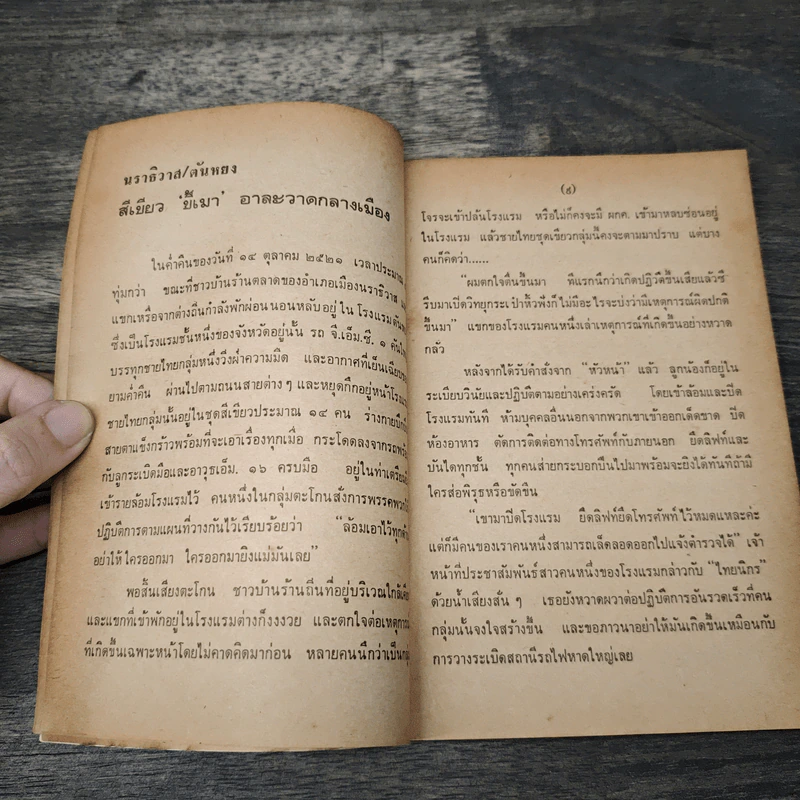 นราธิวาส/ตันหยง
สีเขียว 'ยี้เมา' อาละวาดกลางเมือง
ในค่ำคืนของวันที่ ๑๔ ตุลาคม ๒๕๒๑ เวลาประมาณ
ทุ่มกว่า ขณะที่ชาวบ้านร้านตลาดของอำเภอเมืองนราธิวาส
แขกเหรื่อจากต่างถิ่นกำลังพักผ่อนนอนหลับอยู่ใน โรงแรม
ซึ่งเป็นโรงแรมชั้นหนึ่งของจังหวัดอยู่นั้น รถ จี.เอ็ม.ซี. ๑ คัน
บรรทุกชายไทยกลุ่มหนึ่งวิ่งฝ่าความมืด และอากาศที่เย็นเฉียบ
ยามค่ำคืน ผ่านไปตามถนนสายต่างๆ และหยุดกึกอยู่หน้า
ชายไทยกลุ่มนั้นอยู่ในชุดสีเขียวประมาณ ๑๔ คน ร่างกาย
สายตาแข็งกร้าวพร้อมที่จะเอาเรื่องทุกเมื่อ กระโดดลงจากรถ
กับลูกระเบิดมือและอาวุธเอ็ม. ๑๖ ครบมือ อยู่ในท่าเตรียม
เข้ารายล้อมโรงแรมไว้ คนหนึ่งในกลุ่มตะโกนสั่งการพรรคพวก
ปฏิบัติการตามแผนที่วางกันไว้เรียบร้อยว่า "ล้อมเอาไว้ทุก
อย่าให้ใครออกมา ใครออกมายิงแม่มันเลย"
พอสิ้นเสียงตะโกน ชาวบ้านร้านถิ่นที่อยู่บริเวณใกล้
และแขกที่เข้าพักอยู่ในโรงแรมต่างก็งงงวย และตกใจต่อเหตุการณ์
ที่เกิดขึ้นเฉพาะหน้าโดยไม่คาดคิดมาก่อน หลายคนนึกว่าเป็น
(๕)
โจรจะเข้าปล้นโรงแรม หรือไม่ก็คงจะมี ผกค. เข้ามาหลบซ่อนอยู่
ในโรงแรม แล้วชายไทยชุดเขียวกลุ่มนี้คงจะตามมาปราบ แต่บาง
คนก็คิดว่า......
"ผมตกใจตื่นขึ้นมา ทีแรกนึกว่าเกิดปฏิวัติขึ้นเสียแล้วซี
รีบมาเปิดวิทยุกระเป๋าหิ้วฟังก็ไม่มีอะไรจะบ่งว่ามีเหตุการณ์ผิดปกติ
ขึ้นมา" แขกของโรงแรมคนหนึ่งเล่าเหตุการณ์ที่เกิดขึ้นอย่างหวาด
กลัว
หลังจากได้รับคำสั่งจาก "หัวหน้า" แล้ว ลูกน้องก็อยู่ใน
ระเบียบวินัยและปฏิบัติตามอย่างเคร่งครัด โดยเข้าล้อมและปิด
โรงแรมทันที ห้ามบุคคลอื่นนอกจากพวกเขาเข้าออกเด็ดขาด ปิด
ห้องอาหาร ตัดการติดต่อทางโทรศัพท์กับภายนอก ยึดลิฟท์และ
บันไดทุกชั้น ทุกคนส่ายกระบอกปืนไปมาพร้อมจะยิงได้ทันทีถ้ามี
ใครส่อพิรุธหรือขัดขืน
"เขามาปิดโรงแรม ยึดลิฟท์ยึดโทรศัพท์ไว้หมดแหละค่ะ
แต่ก็มีคนของเราคนหนึ่งสามารถเล็ดลอดออกไปแจ้งตำรวจได้" เจ้า
หน้าที่ประชาสัมพันธ์สาวคนหนึ่งของโรงแรมกล่าวกับ "ไทยนิกร"
ด้วยน้ำเสียงสั่น ๆ เธอยังหวาดผวาต่อปฏิบัติการอันรวดเร็วที่คน
กลุ่มนั้นจงใจสร้างขึ้น และขอภาวนาอย่าให้มันเกิดขึ้นเหมือนกับ
การวางระเบิดสถานีรถไฟหาดใหญ่เลย